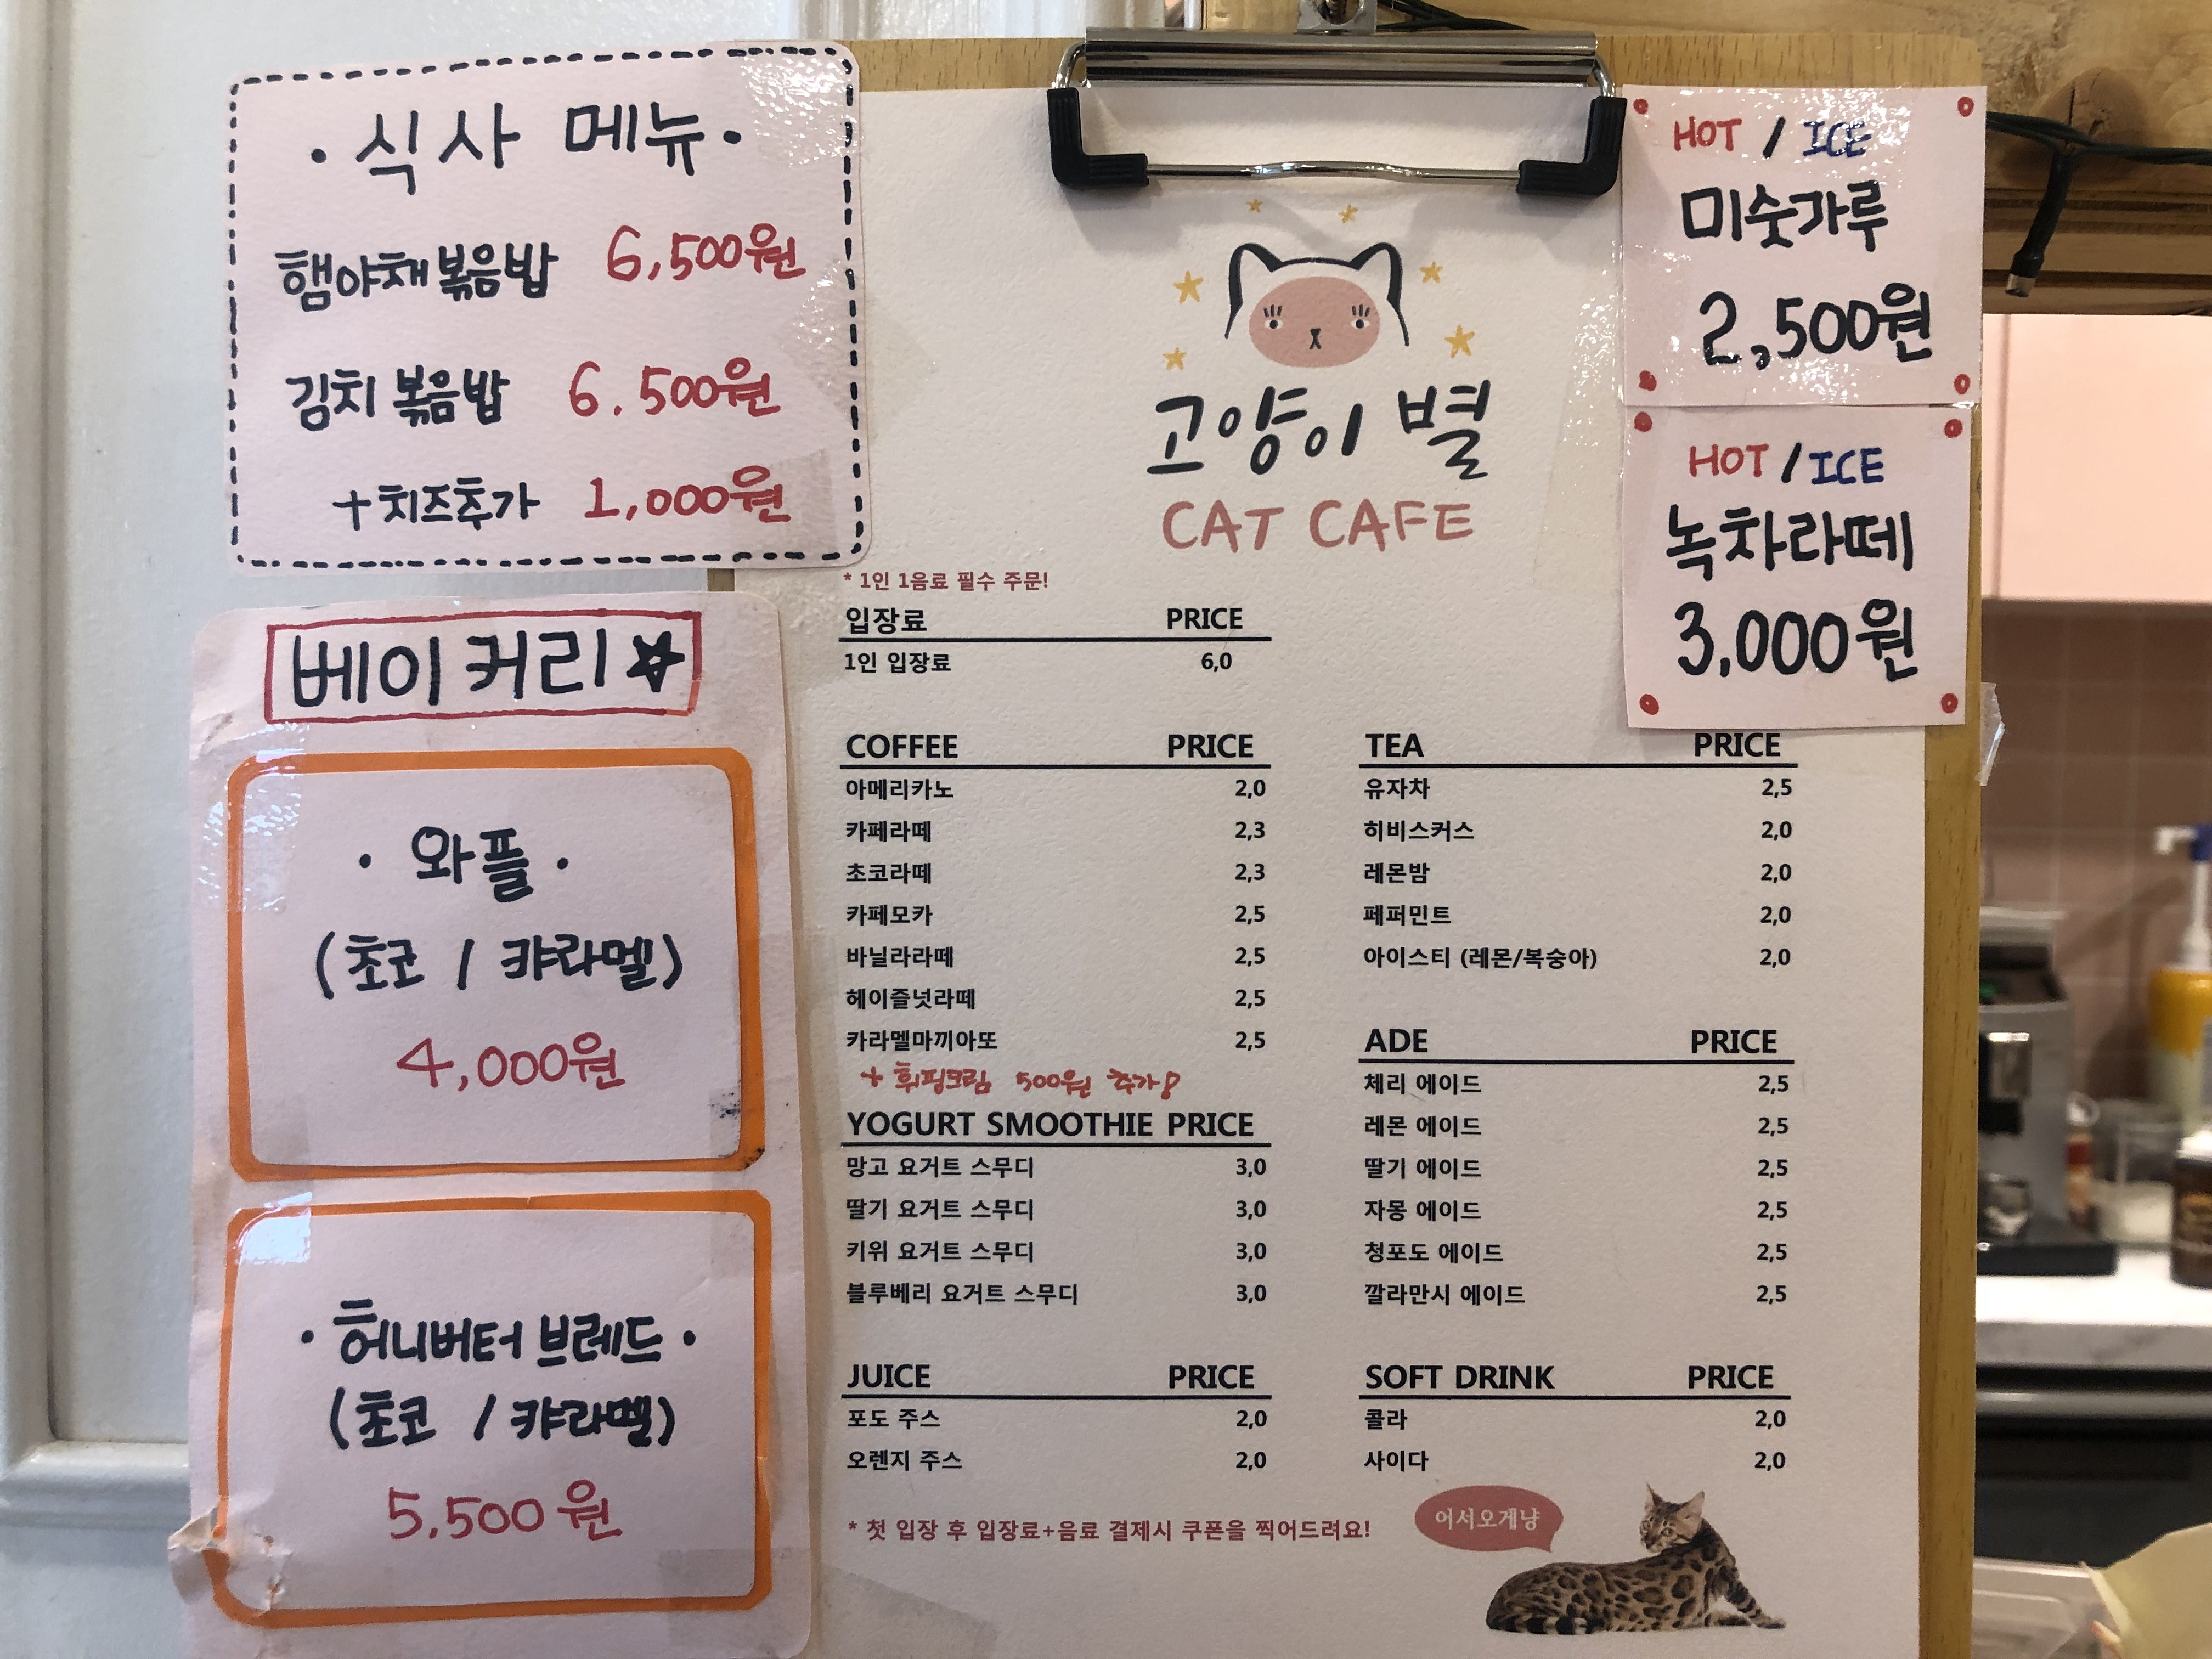 · 식사 메뉴 ·
햄야채볶음밥 6,500원
김치볶음밥 6.500원
+치즈추가 1,000원
베이커리
· 와플 ·
(초코 / 캬라멜)
4,000원
· 허니버터 브레드 ·
(초코 / 캬라멜)
5,500원
고양이 별
CAT CAFE
* 1인 1음료 필수 주문!
입장료 PRICE
1인 입장료 6,0
COFFEE PRICE
아메리카노 2,0
카페라떼 2,3
초코라떼 2,3
카페모카 2,5
바닐라라떼 2,5
헤이즐넛라떼 2,5
카라멜마끼아또 2,5
+ 휘핑크림 500원 추가!
YOGURT SMOOTHIE PRICE
망고 요거트 스무디 3,0
딸기 요거트 스무디 3,0
키위 요거트 스무디 3,0
블루베리 요거트 스무디 3,0
JUICE PRICE
포도 주스 2,0
오렌지 주스 2,0
* 첫 입장 후 입장료+음료 결제시 쿠폰을 찍어드려요!
HOT / ICE
미숫가루
2,500원
HOT / ICE
녹차라떼
3,000원
TEA PRICE
유자차 2,5
히비스커스 2,0
레몬밤 2,0
페퍼민트 2,0
아이스티 (레몬/복숭아) 2,0
ADE PRICE
체리 에이드 2,5
레몬 에이드 2,5
딸기 에이드 2,5
자몽 에이드 2,5
청포도 에이드 2,5
깔라만시 에이드 2,5
SOFT DRINK PRICE
콜라 2,0
사이다 2,0
어서오게냥